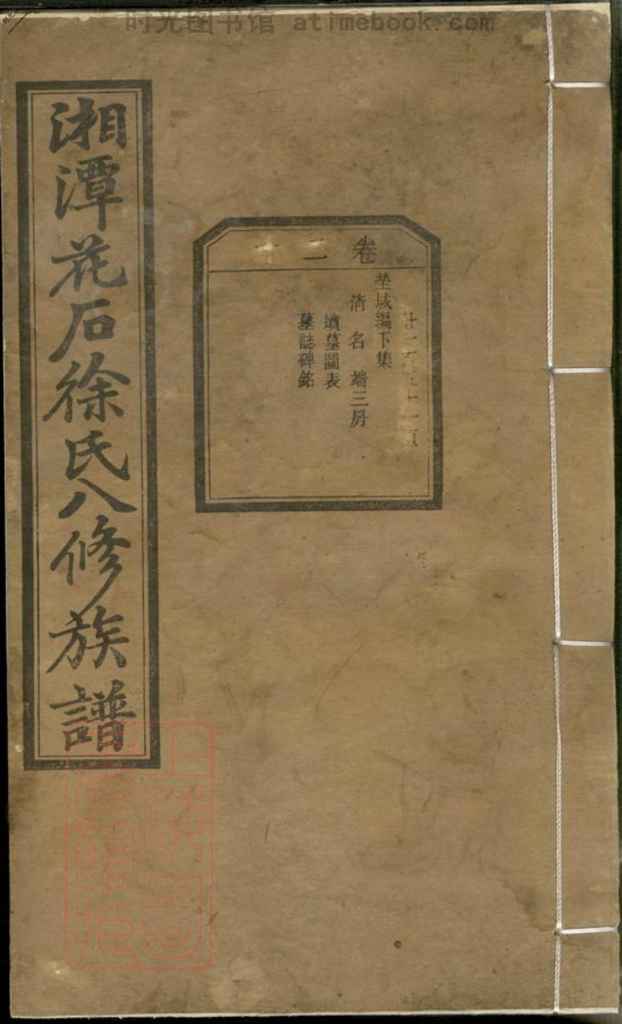 时光图书馆 atimebook.com
湘潭花石徐氏八修族譜
卷二十
塋域編下集
清名端三房
墳墓圖表
墓誌碑銘